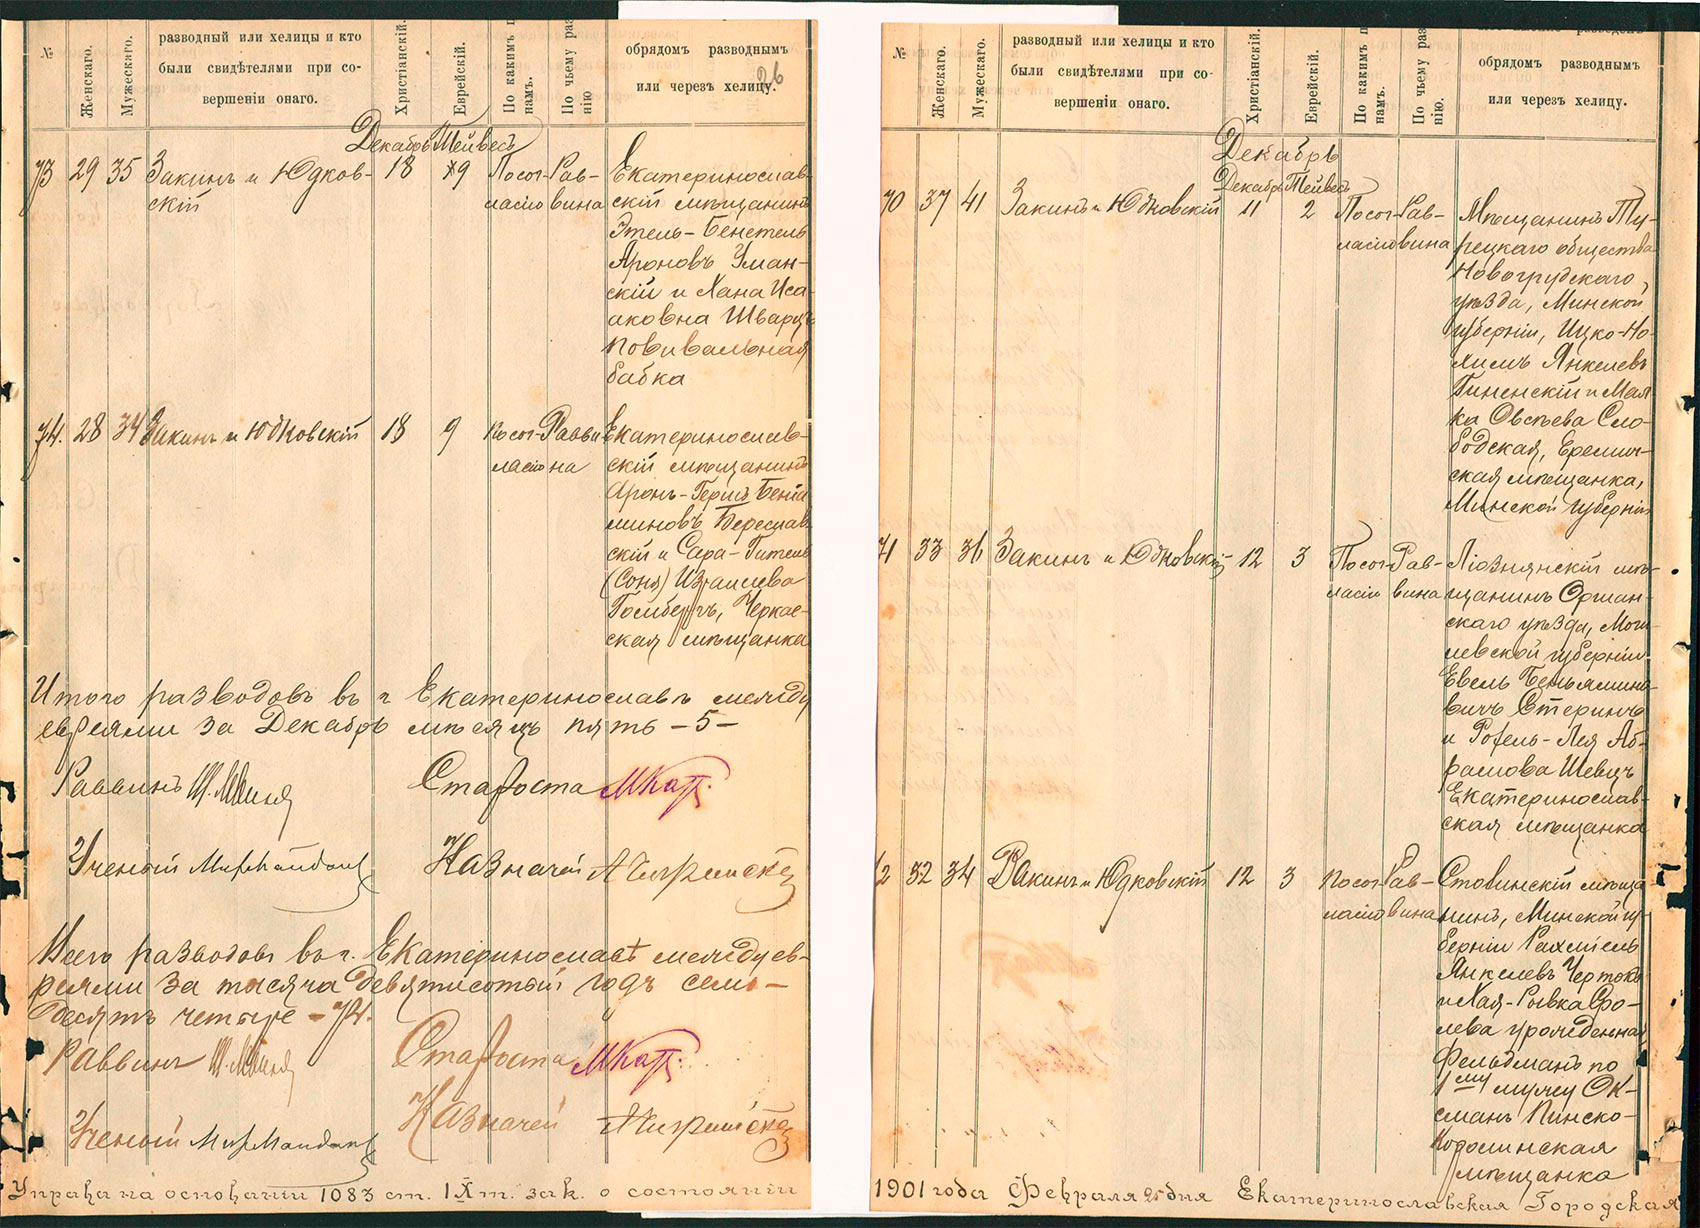 №
Женскаго.
Мужескаго.
разводный или хелицы и кто
были свидѣтелями при со-
вершеніи онаго.
Христіанскій.
Еврейскій.
По какимъ п
намъ.
По чьему раз
нію
обрядомъ разводнымъ
или черезъ хелицу.
26
Декабрь Тейвесъ
73 29 35 Закинъ и Юдков-
скій
18 9 По сог-
ласію
Рав-
вина
Екатеринослав-
скій мѣщанинъ
Этель-Бенетель
Ароновъ Уман-
скій и Хана Иса-
аковна Шварцъ
повивальная
бабка
74. 28 34 Закинъ и Юдковскій 18 9 По сог-
ласію
Равви
на
Екатеринослав-
скій мѣщанинъ
Аронъ-Гершъ Бенiа
миновъ Береслав
скій и Сара-Гитель
(Соня) Израилева
Гомбергъ, Черкас-
ская мѣщанка
Итого разводовъ въ г Екатеринославѣ между
евреями за Декабрь мѣсяцъ пять -5-
Раввинъ
Староста
Ученый
Казначей
Всего разводовъ въ г. Екатеринославѣ между ев-
реями за тысяча девятисотый годъ семь-
десятъ четыре - 74.
Раввинъ
Староста
Казначей
Ученый
Управа на основаніи 1083 ст. IX т. зак. о состояніи
№
Женскаго.
Мужескаго.
разводный или хелицы и кто
были свидѣтелями при со-
вершеніи онаго.
Христіанскій.
Еврейскій.
По каким п
намъ.
По чьему раз
нію.
обрядомъ разводнымъ
или черезъ хелицу.
Декабрь
Декабрь Тейвесъ
70 37 41 Закинъ и Юдковскій 11 2 По сог-
ласію
Рав-
вина
Мѣщанинъ Ту-
рецкаго общества
Новогрудскаго
уѣзда, Минской
губерніи, Ицко-Но-
химъ Янкелевъ
Гиненскій и Мал
ка Овсѣева Сло-
бодская, Еремич-
ская мѣщанка,
Минской губерніи
71 33 36 Закинъ и Юдковскій 12 3 По сог-
ласію
Рав-
вина
Ліознянскій мѣ-
щанинъ Оршан-
скаго уѣзда, Моги
левской губерніи
Евель Беньямино-
вичъ Стеринъ
и Рохель-Лея Аб-
рамова Шевцъ
Екатеринослав-
ская мѣщанка
2 32 34 Закинъ и Юдковскій 12 3 По сог
ласію
Рав-
вина
Столинскій мѣща
нинъ, Минской гу-
берніи Рахміель
Янкелевъ Чертокъ
и Хая-Рывка Сро-
лева урожденная
Фельдманъ по
1му мужу Ок-
сманъ Пинско-
Королинская
мѣщанка
1901 года Февраля 25 дня Екатеринославская Городская